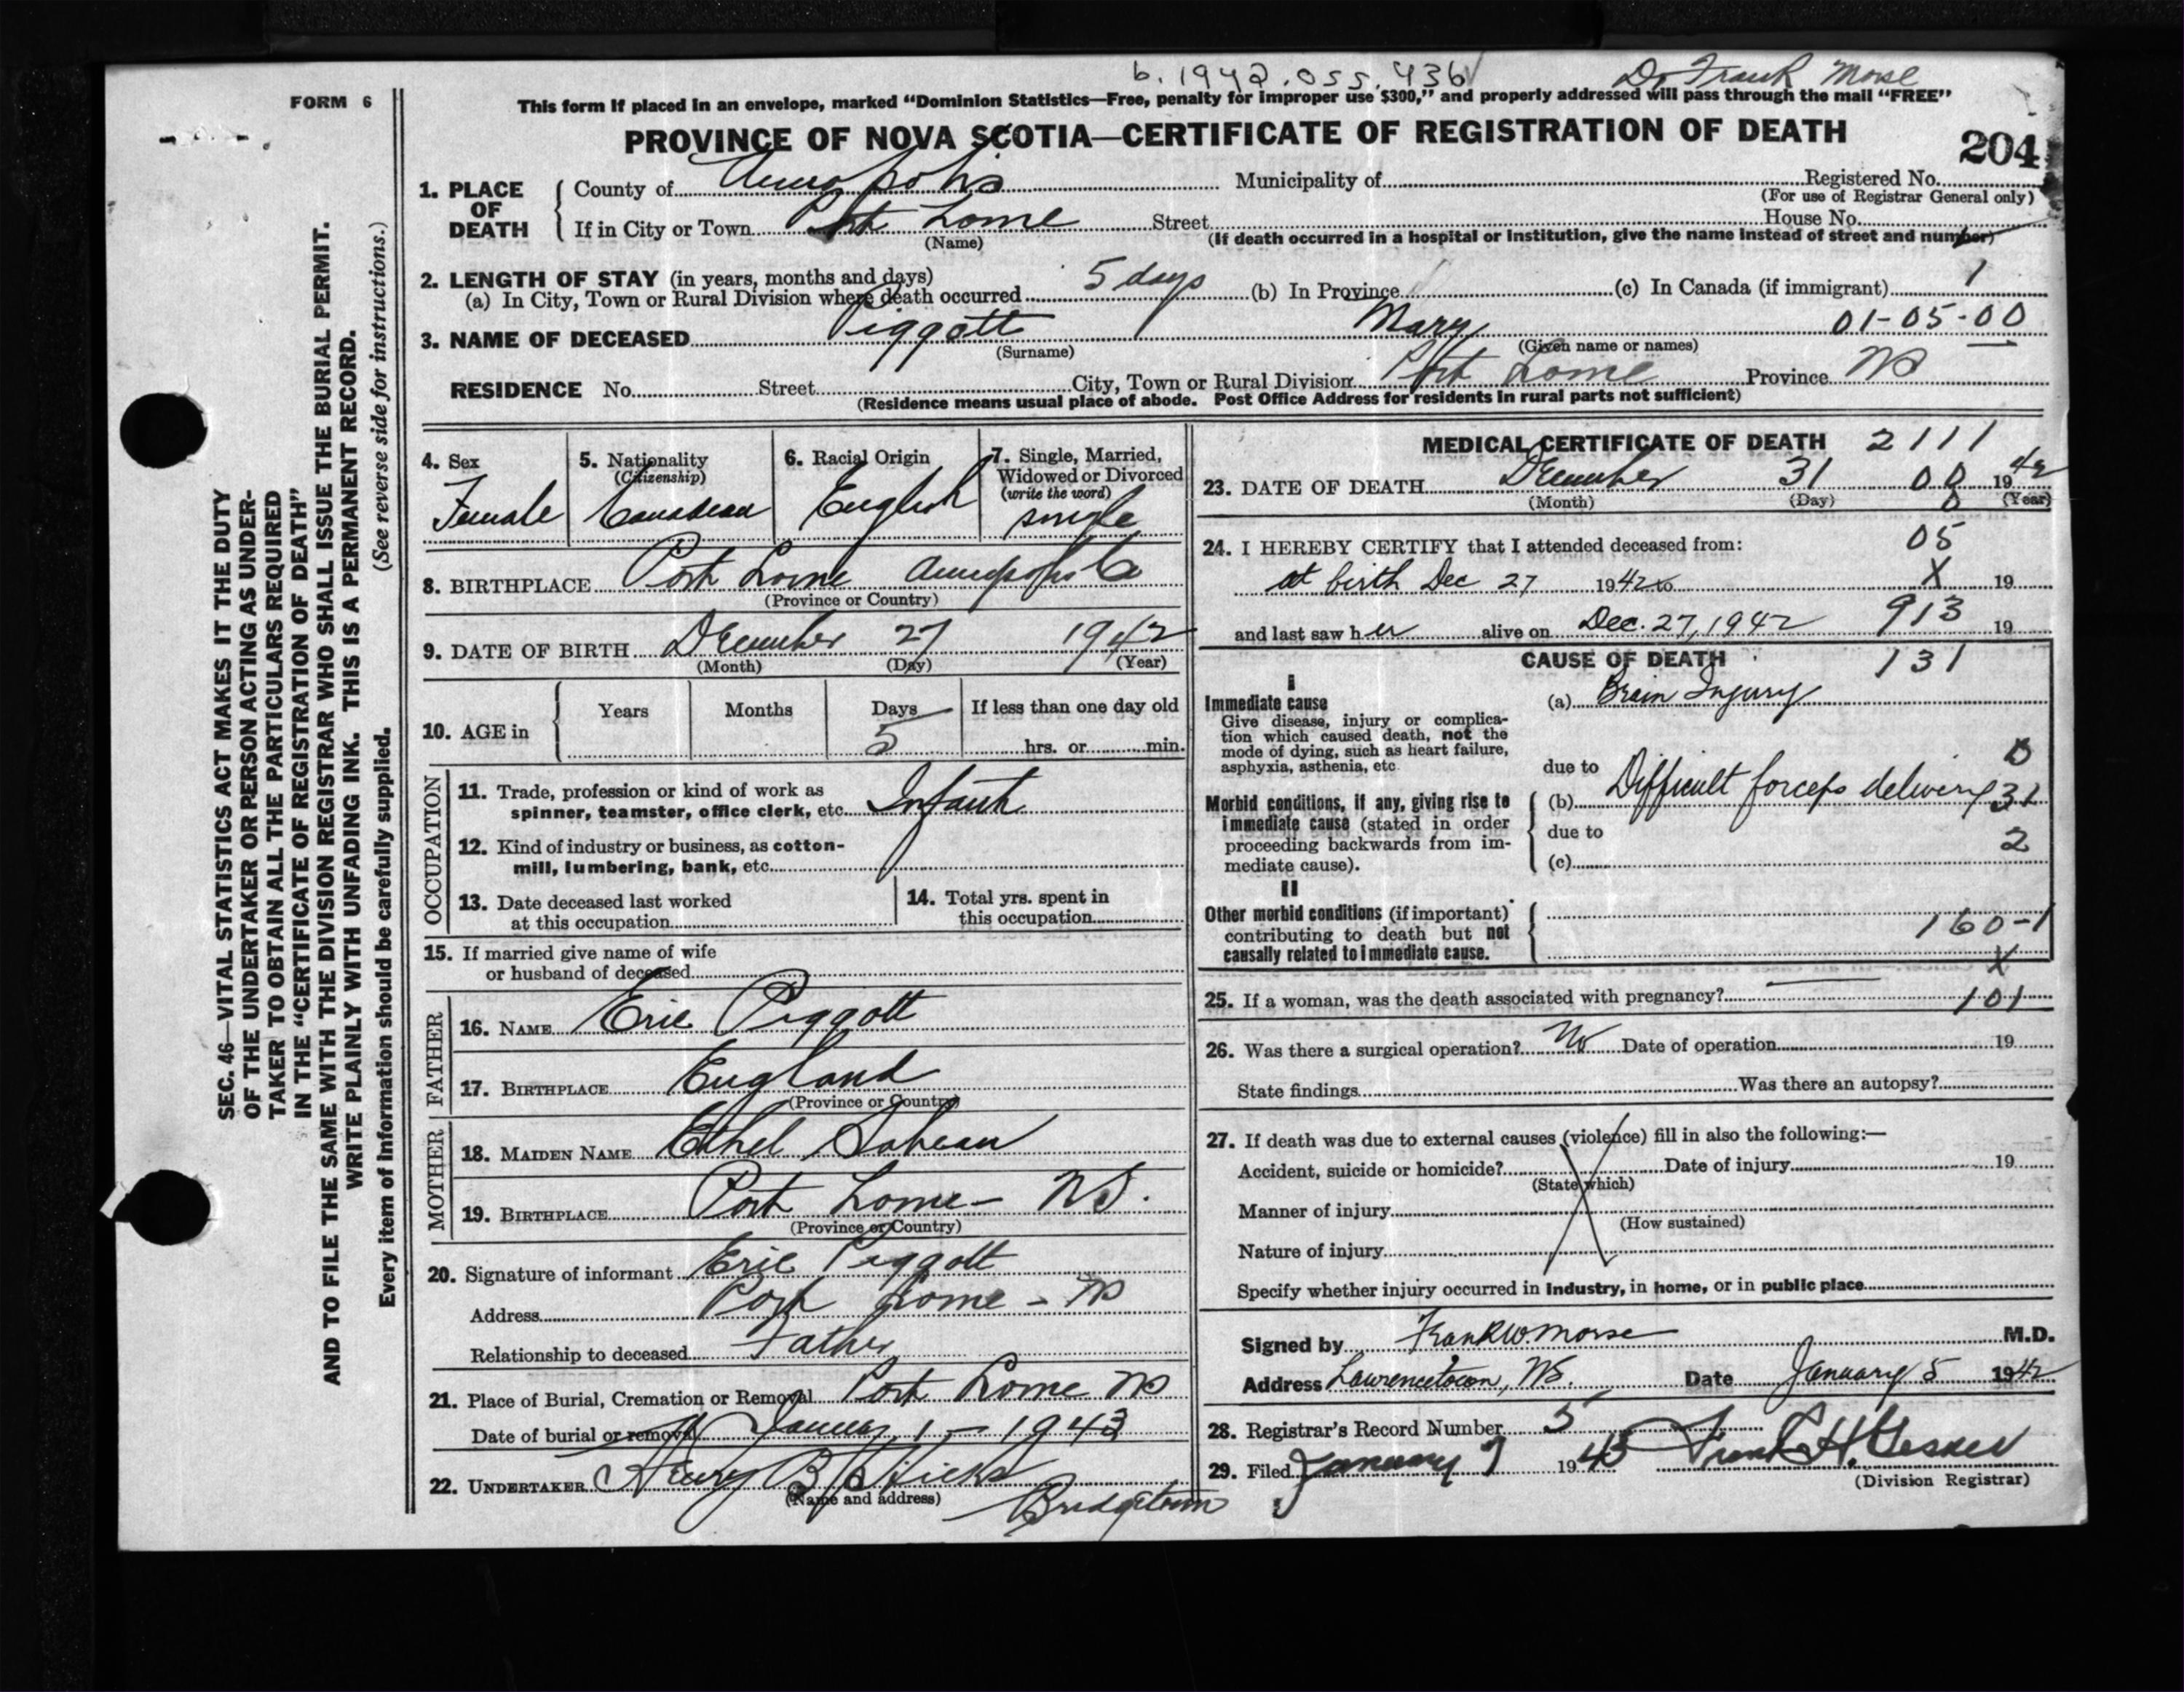 b. 1942.055.436
Dr Frank Morse
FORM 6
This form if placed in an envelope, marked “Dominion Statistics—Free, penalty for improper use $300,” and properly addressed will pass through the mail “FREE”
PROVINCE OF NOVA SCOTIA—CERTIFICATE OF REGISTRATION OF DEATH
204
SEC. 46—VITAL STATISTICS ACT MAKES IT THE DUTY
OF THE UNDERTAKER OR PERSON ACTING AS UNDER-
TAKER TO OBTAIN ALL THE PARTICULARS REQUIRED
IN THE “CERTIFICATE OF REGISTRATION OF DEATH”
AND TO FILE THE SAME WITH THE DIVISION REGISTRAR WHO SHALL ISSUE THE BURIAL PERMIT.
WRITE PLAINLY WITH UNFADING INK. THIS IS A PERMANENT RECORD.
Every item of information should be carefully supplied. (See reverse side for instructions.)
1. PLACE OF DEATH
County of Annapolis Municipality of Registered No.
(For use of Registrar General only)
If in City or Town Port Lorne Street House No.
(Name) (If death occurred in a hospital or institution, give the name instead of street and number)
2. LENGTH OF STAY (in years, months and days)
(a) In City, Town or Rural Division where death occurred 5 days (b) In Province (c) In Canada (if immigrant) 1
3. NAME OF DECEASED Piggott Mary 01-05-00
(Surname) (Given name or names)
RESIDENCE No. Street City, Town or Rural Division Port Lorne Province NS
(Residence means usual place of abode. Post Office Address for residents in rural parts not sufficient)
4. Sex
Female
5. Nationality
(Citizenship)
Canadian
6. Racial Origin
English
7. Single, Married,
Widowed or Divorced
(write the word)
single
8. BIRTHPLACE Port Lorne Annapolis Co
(Province or Country)
9. DATE OF BIRTH December 27 1942
(Month) (Day) (Year)
10. AGE in
Years Months Days If less than one day old
5 hrs. or min.
OCCUPATION
11. Trade, profession or kind of work as
spinner, teamster, office clerk, etc. Infant
12. Kind of industry or business, as cotton-
mill, lumbering, bank, etc.
13. Date deceased last worked
at this occupation
14. Total yrs. spent in
this occupation
15. If married give name of wife
or husband of deceased
FATHER
16. NAME Eric Piggott
17. BIRTHPLACE England
(Province or Country)
MOTHER
18. MAIDEN NAME Ethel Sabean
19. BIRTHPLACE Port Lorne - NS.
(Province or Country)
20. Signature of informant Eric Piggott
Address Port Lorne - NS
Relationship to deceased Father
21. Place of Burial, Cremation or Removal Port Lorne NS
Date of burial or removal January 1 - 1943
22. UNDERTAKER Henry B Hicks
(Name and address) Bridgetown
MEDICAL CERTIFICATE OF DEATH 2111
23. DATE OF DEATH December 31 00 1942
(Month) (Day) 0 (Year)
24. I HEREBY CERTIFY that I attended deceased from: 05
at birth Dec 27 1942 to X 19
and last saw her alive on Dec. 27, 1942 913 19
CAUSE OF DEATH 131
I
Immediate cause
Give disease, injury or complica-
tion which caused death, not the
mode of dying, such as heart failure,
asphyxia, asthenia, etc.
(a) Brain Injury
due to
Morbid conditions, if any, giving rise to
immediate cause (stated in order
proceeding backwards from im-
mediate cause).
(b) Difficult forceps delivery 31
due to 2
(c)
II
Other morbid conditions (if important)
contributing to death but not
causally related to immediate cause.
160-1
X
25. If a woman, was the death associated with pregnancy? 101
26. Was there a surgical operation? No Date of operation 19
State findings Was there an autopsy?
27. If death was due to external causes (violence) fill in also the following:—
Accident, suicide or homicide? Date of injury 19
(State which)
Manner of injury
(How sustained)
Nature of injury
Specify whether injury occurred in industry, in home, or in public place
Signed by Frank W. Morse M.D.
Address Lawrencetown, NS. Date January 5 1942
28. Registrar's Record Number 5
29. Filed January 7 1943 Frank H. Gesner
(Division Registrar)